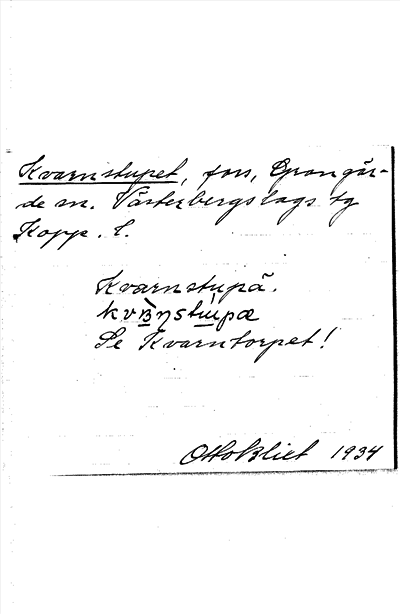 Kvarnstupet, fors, Grangär-
de sn. Västerbergslags tg
Kopp. l.
Kvarnstupä.
Se Kvarntorpet!
Otto Blixt 1934